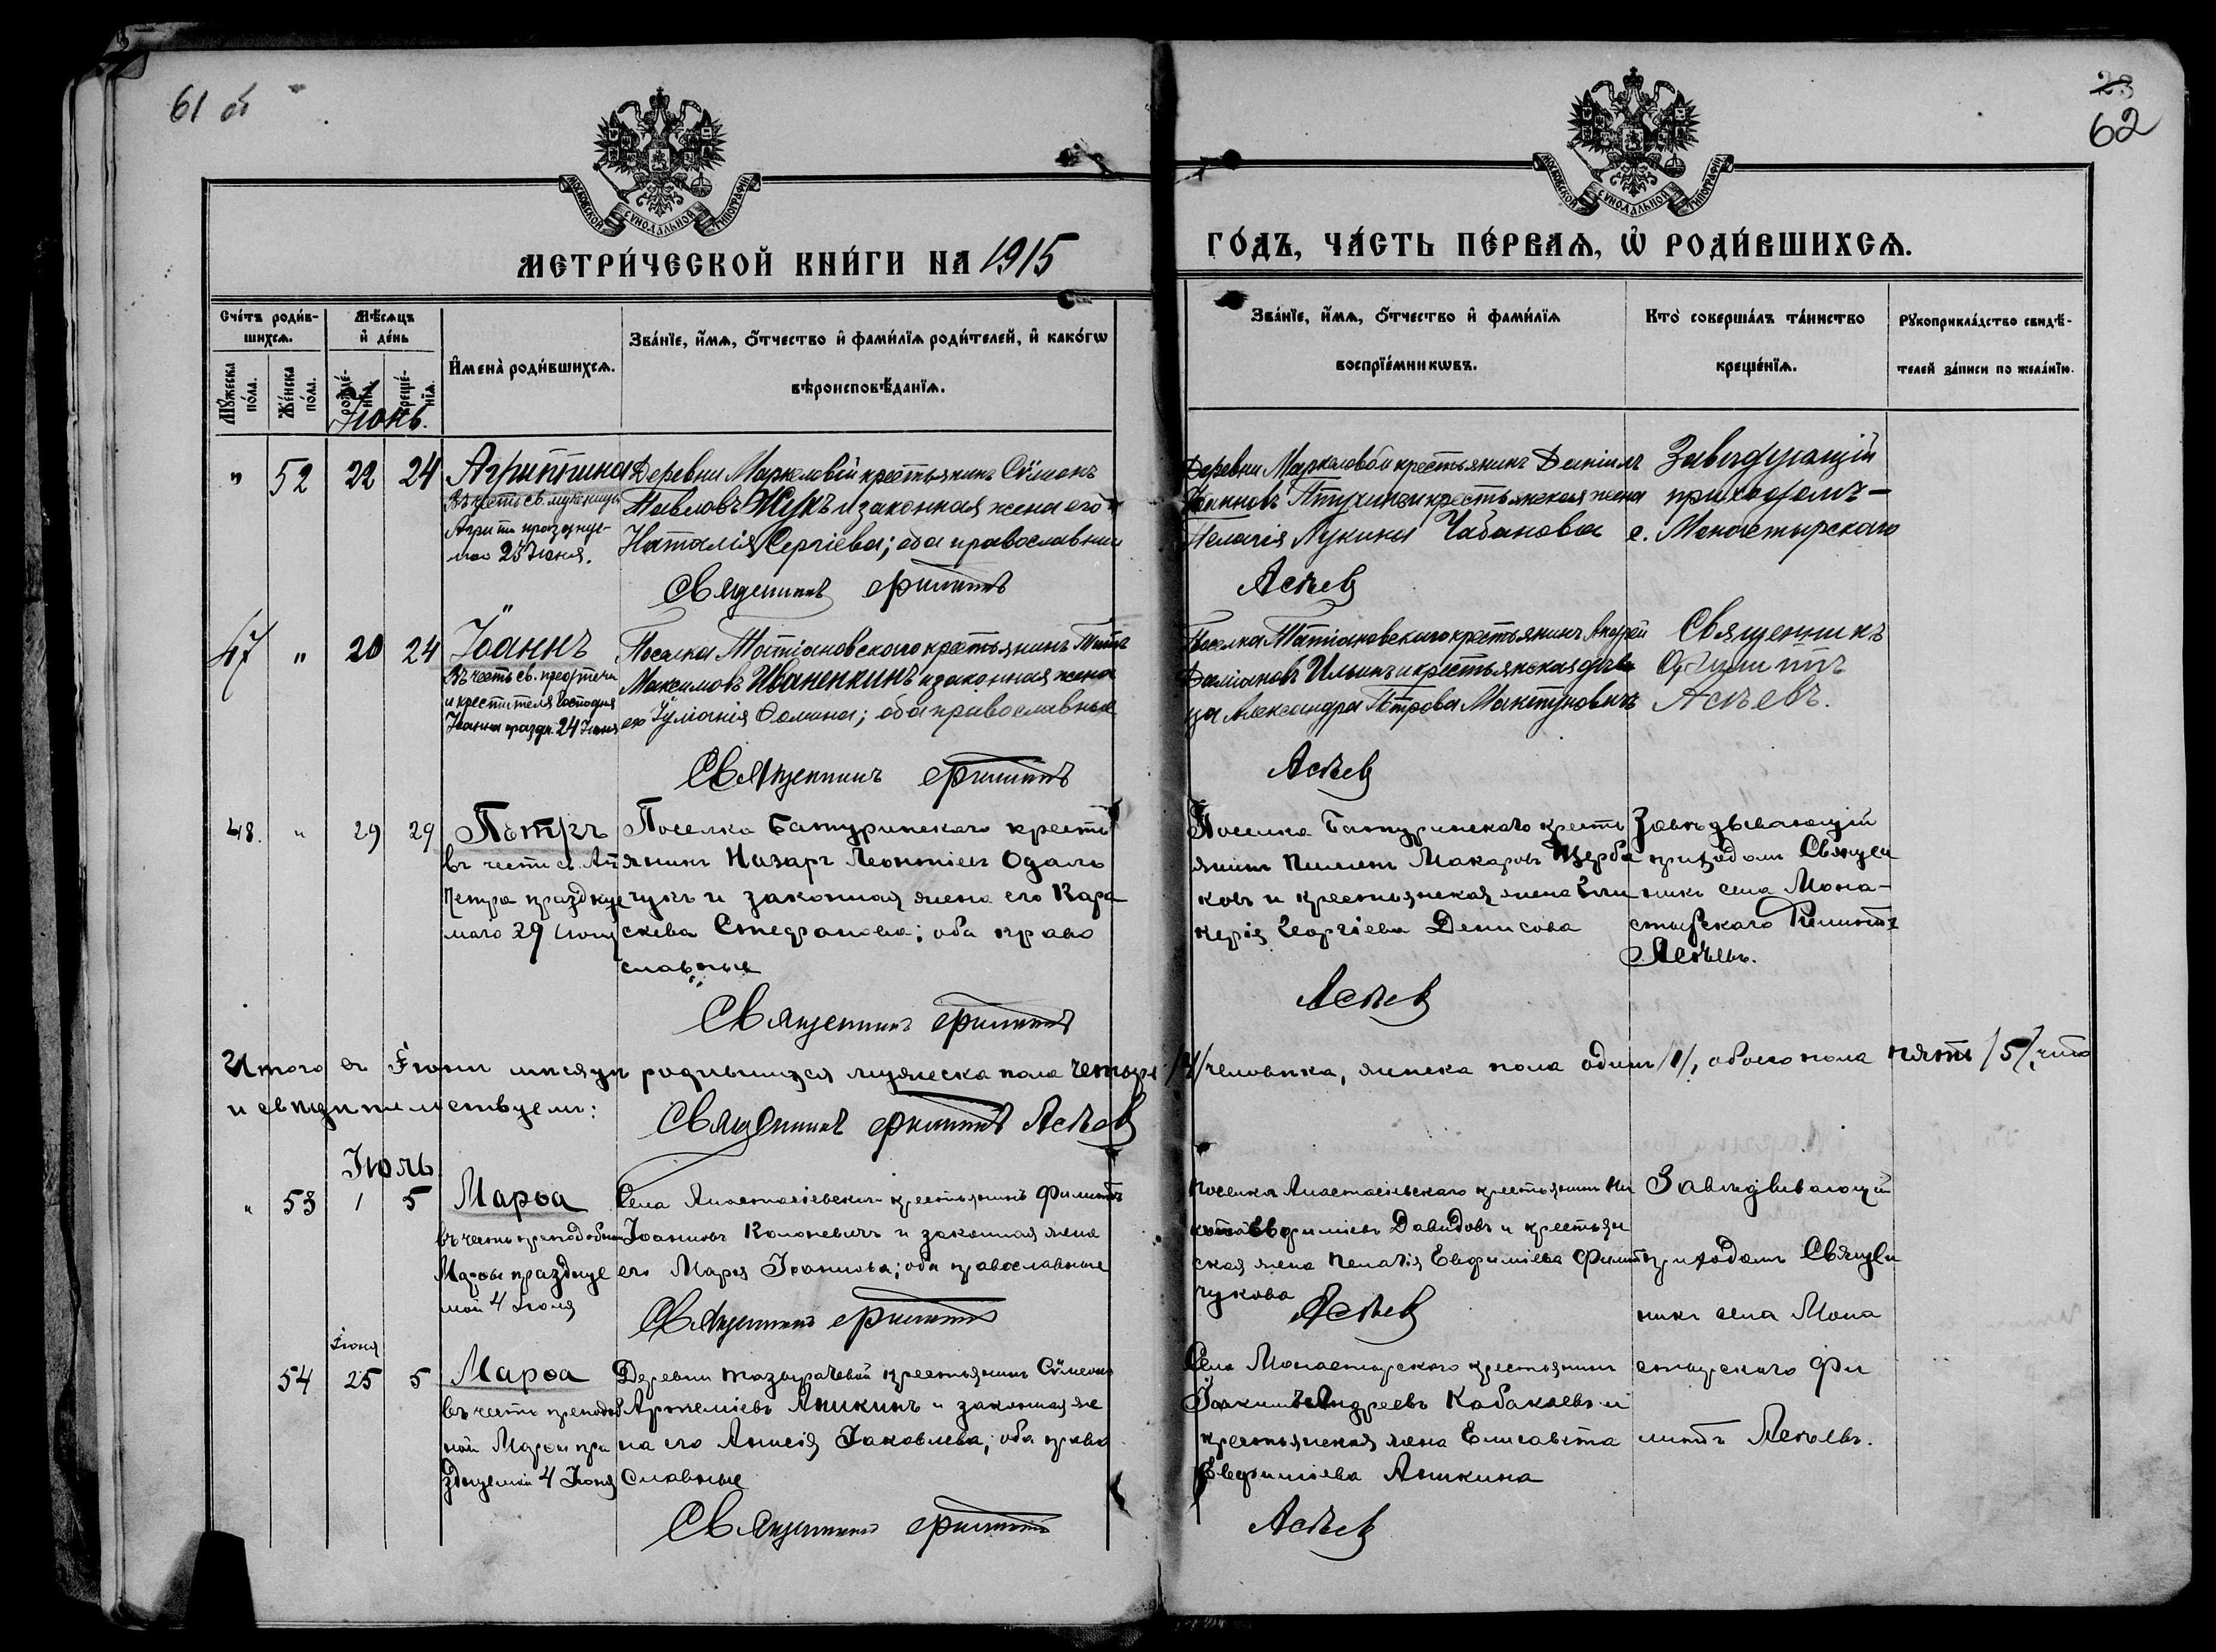 61 об
23
62
МОСКОВСКОЙ СѴНОДАЛЬНОЙ ТИПОГРАФІИ
МОСКОВСКОЙ СѴНОДАЛЬНОЙ ТИПОГРАФІИ
МЕТРИ́ЧЕСКОЙ КНИ́ГИ НА 1915
ГО́ДЪ, ЧА́СТЬ ПЕ́РВАѦ, Ѡ҆ РОДИ́ВШИХСѦ.
Сче́тъ роди́в-
шихсѧ.
Мѣ́сѧцъ
и҆ де́нь
Мꙋ́жеска
по́ла.
Же́нска
по́ла.
рожде́-
нїѧ.
креще́-
нїѧ.
И҆мена̀ роди́вшихсѧ.
Зва́нїе, и҆́мѧ, ѻ҆́тчество и҆ фами́лїѧ роди́телей, и҆ како́гѡ
вѣроисповѣ́данїѧ.
Зва́нїе, и҆́мѧ, ѻ҆́тчество и҆ фами́лїѧ
воспрїе́мникѡвъ.
Кто̀ соверша́лъ та́инство
креще́нїѧ.
Рꙋкоприкла́дство свидѣ́-
телей за́писи по жела́нїю.
Іюнь.
" 52 22 24 Агриппина
Въ честь св. мученицы
Агрип. празднуе-
мой 23 Іюня.
Деревни Маркеловой крестьянинъ Сѵмеонъ
Павловъ Жукъ и законная жена его
Наталія Сергіева; оба православные
Священникъ Филиппъ
Деревни Маркеловой крестьянинъ Даніилъ
Птухинъ и крестьянская жена
Пелагія Лукина Чабанова
Асѣев
Завѣдующій
приходомъ —
с. Монастырскаго
47 " 20 24 Іоаннъ
Въ честь св. предтечи
и крестителя Господня
Іоанна праздн. 24 Іюня
Поселка Татіановскаго крестьянинъ Титъ
Максимовъ Иваненкинъ и законная жена
его Іуліанія Ѳомина; оба православные
Священникъ Филиппъ
Поселка Татіановскаго крестьянинъ Андрей
Даміановъ Ильинъ и крестьянская дѣви
ца Александра Петрова Мактуновичъ
Асѣев
Священникъ
Филиппъ
Асѣевъ.
48. " 29 29 Петръ
въ честь св. Ап
Петра праздну
маго 29 Іюня
Поселка Батуринскаго кресть
янинъ Назаръ Леонтіевъ Одаль
чукъ и законная жена его Пара
скева Стефанова; оба право
славные
Священникъ Филиппъ
Поселка Батуринскаго кресть
янинъ Пименъ Макаровъ Щерба
ковъ и крестьянская жена Гли
керія Георгіева Денисова
Асѣев
Завѣдывающій
приходомъ Священ
никъ села Мона-
стырскаго Филиппъ
Асѣевъ.
Итого въ Іюнѣ мѣсяцѣ родившихся мужеска пола четыре /4/ человѣка, женска пола одинъ /1/, обоего пола пять /5/, что
и свидѣтельствуемъ:
Священникъ Филиппъ Асѣев
Іюль
" 53 1 5 Марѳа
въ честь преподобной
Марѳы празднуе
мой 4 Іюля
Села Анастасіевскаго крестьянинъ Филиппъ
Іоанновъ Кононевичъ и законная жена
его Марія Іоаннова; оба православные
Священникъ Филиппъ
Поселка Анастасіевскаго крестьянинъ Ни
кита Евфиміевъ Давидовъ и крестьян
ская жена Пелагія Евфиміева Филип
чукова
Асѣев
Завѣдывающій
приходомъ Священ
никъ села Мона
стырскаго Фи
липпъ Асѣевъ.
Іюня
54 25 5 Марѳа
въ честь преподоб
ной Марѳы пра
зднуемой 4 Іюля
Деревни Тазырачевой крестьянинъ Сѵмеонъ
Артеміевъ Аникинъ и законная же
на его Анисія Іаковлева; оба право
славные
Священникъ Филиппъ
Села Монастырскаго крестьянинъ
Іоакимъ Андреевъ Кабаковъ и
крестьянская жена Елисавета
Евфиміева Аникина
Асѣев